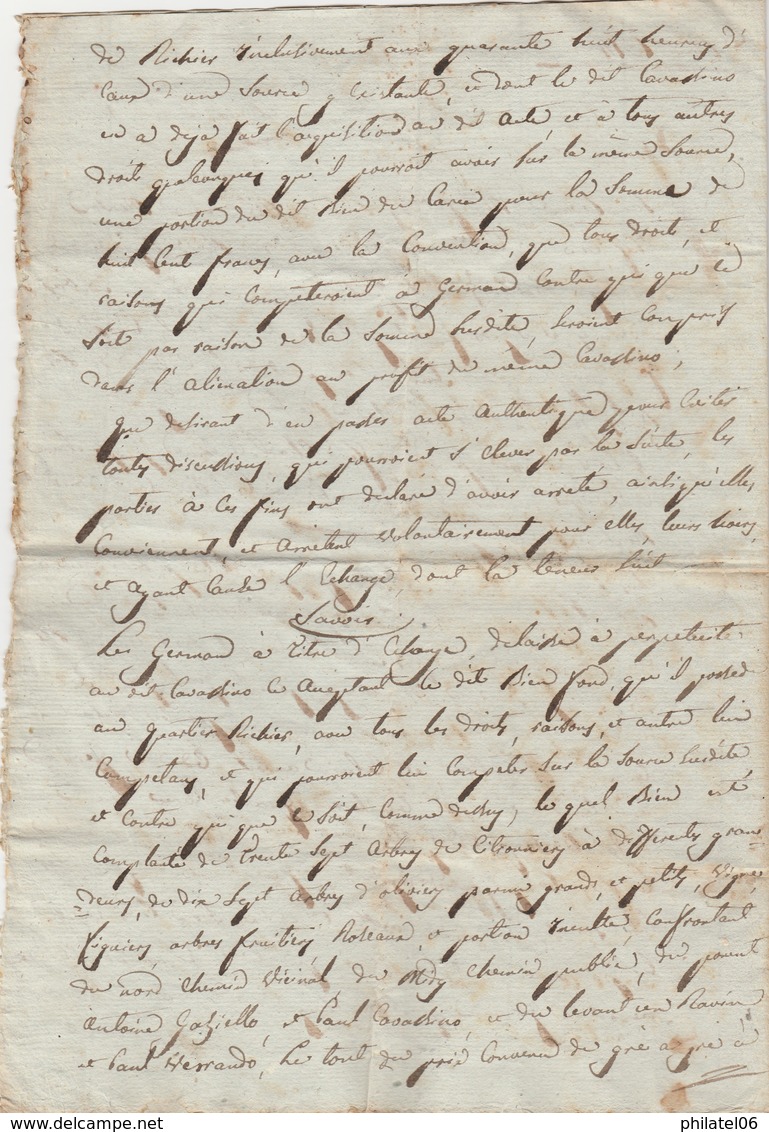 de Richier inclusivement aux quarante huit heures d'
eaux d'une source y existante, et dont le dit Cavassino
en a déja fait l'acquisition au dit acte et à tous autres
droits quelconques qu'il pourroit avoir sur la même source,
une portion du dit Bien du Carie pour la somme de
huit cent francs, avec la convention, que tous droits, et
raisons qui competeroient à German contre qui que ce
soit par raison de la somme susdite, seroient compris
dans l'alienation au profit du même Cavassino;
que desirant d'en passer acte authentique, pour eviter
toutes discussions, qui pourroient s'elever par la suite, les
parties à ces fins ont declaré d'avoir arreté, ainsi qu'elles
conviennent, et arretent volontairement pour elles, leurs hoirs,
et ayant cause l'Echange, dont la teneur suit
Savoir
Les German à titre d'Echange, delaisse à perpetuité
au dit Cavassino ce aceptant le dit Bien fond, qu'il possed
au quartier Richier, avec tous les droits, raisons, et autre lui
competans, et qui pourroient lui competer sur la source susdite
et contre qui que ce soit, comme dessus, le quel Bien est
complanté de trente sept arbres de Citronniers à differents gran-
-deurs, de dix sept arbres d'oliviers parmi grands, et petits, vignes
figuiers, arbres fruitiers, Roseaux, et portion inculte, confrontant
du nord chemin vicinal, du Midy chemin public, du ponent
Antoine Gaziello, et Paul Cavassino, et du levant un Ravin
et Paul Verrando, Le tout du prix convenu de gré a gré à
philatel06